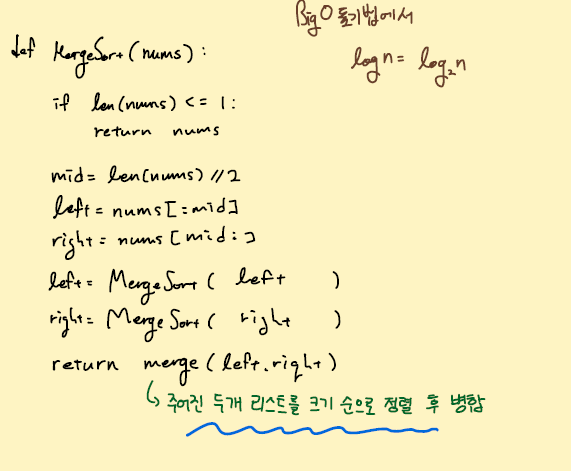 Big O 표기법에서
log n = log₂n
def MergeSort (nums) :
if len(nums) <= 1 :
return nums
mid = len(nums) // 2
left = nums [ : mid ]
right = nums [ mid : ]
left = MergeSort ( left )
right = MergeSort ( right )
return merge ( left . right )
↳ 주어진 두개 리스트를 크기 순으로 정렬 후 병합